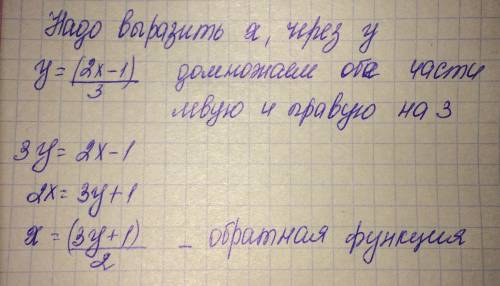 Надо выразить x, через y
y = (2x-1)/3 домножаем обе части
левую и правую на 3
3y = 2x-1
2x = 3y+1
x = (3y+1)/2 - обратная функция